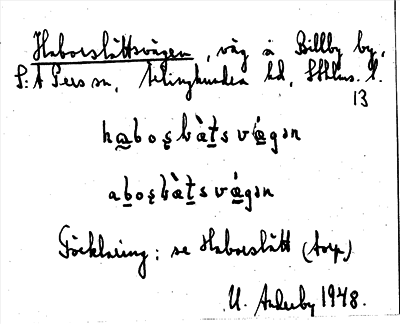 Haborslättsvägen, väg å Billby by,
S:t Pers sn, Ärlinghundra hd, Sthlms. l.
13
habos̨bàts vágən
abos̨bàts vágən
Förklaring: se Haborslätt (torp.)
U. Ankerby 1948.